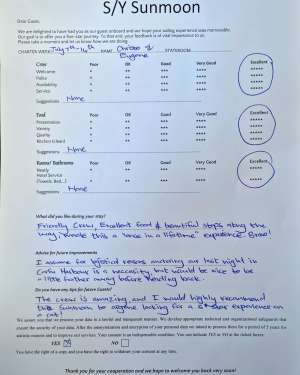 S/Y Sunmoon
Dear Guest,
We are delighted to have had you as our guest onboard and we hope your sailing experience was memorable.
Our goal is to offer you a five-star journey. To that end, your feedback is of vital importance to us.
Please take a moment and let us know how we are doing.
CHARTER WEEK July 7th - 14th NAME Christos & STATEROOM
Eugenie
Crew Poor OK Good Very Good Excellent
Welcome * ** *** **** *****
Polite * ** *** **** *****
Availability * ** *** **** *****
Service * ** *** **** *****
Suggestions None
Food Poor OK Good Very Good Excellent
Presentation * ** *** **** *****
Variety * ** *** **** *****
Quality * ** *** **** *****
Kitchen & Board * ** *** **** *****
Suggestions None
Rooms/ Bathrooms Poor OK Good Very Good Excellent
Neatly * ** *** **** *****
Hotel Service
(Towels, Bed,...) * ** *** **** *****
Suggestions None
What did you like during your stay?
Friendly Crew, Excellent food & beautiful stops along the
way, made this a "once in a lifetime" experience. Bravo!
Advice for future improvements
I assume for logistical reasons anchoring our last night in
Corfu Harbour is a necessity but would be nice to be
a little farther away before heading back.
Do you have any tips for future Guests?
The crew is amazing and I would highly recommend
this Sunmoon to anyone looking for a 5 star experience on
We assure you that we process your data in a lawful and transparent manner. We develop appropriate technical and organizational safeguards that
ensure the security of your data. After the anonymization and encryption of your personal data we intend to process them for a period of 7 years for
statistic reasons and to improve our services. Your consent is an indispensable condition. You can indicate YES or NO in the ticked boxes.
YES NO
You have the right of a copy, and you have the right to withdraw your consent at any time.
Thank you for your cooperation and we hope to welcome you back very soon!